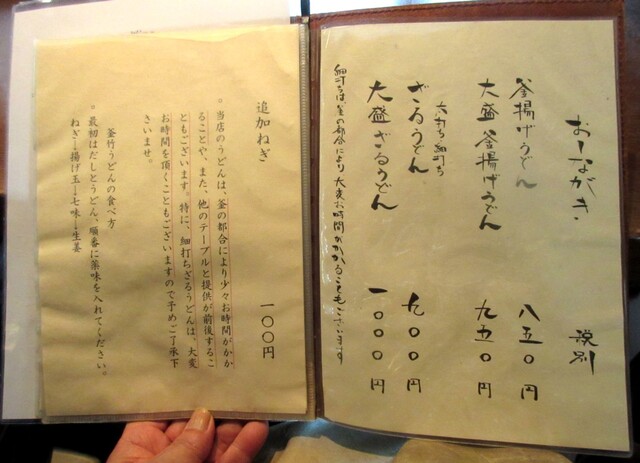 おしながき 税別
釜揚げうどん 八五〇円
大盛釜揚げうどん 九五〇円
太打ち 細打ち
ざるうどん 九〇〇円
大盛ざるうどん 一〇〇〇円
細打ちは、釜の都合により大変お時間がかかることもございます
追加ねぎ 一〇〇円
。当店のうどんは、釜の都合により少々お時間がかか
ることや、また、他のテーブルと提供が前後するこ
ともございます。特に、細打ちざるうどんは、大変
お時間を頂くこともございますので予めご了承下
さいませ。
釜竹うどんの食べ方
。最初はだしとうどん、順番に薬味を入れてください。
ねぎ→揚げ玉→七味→生姜